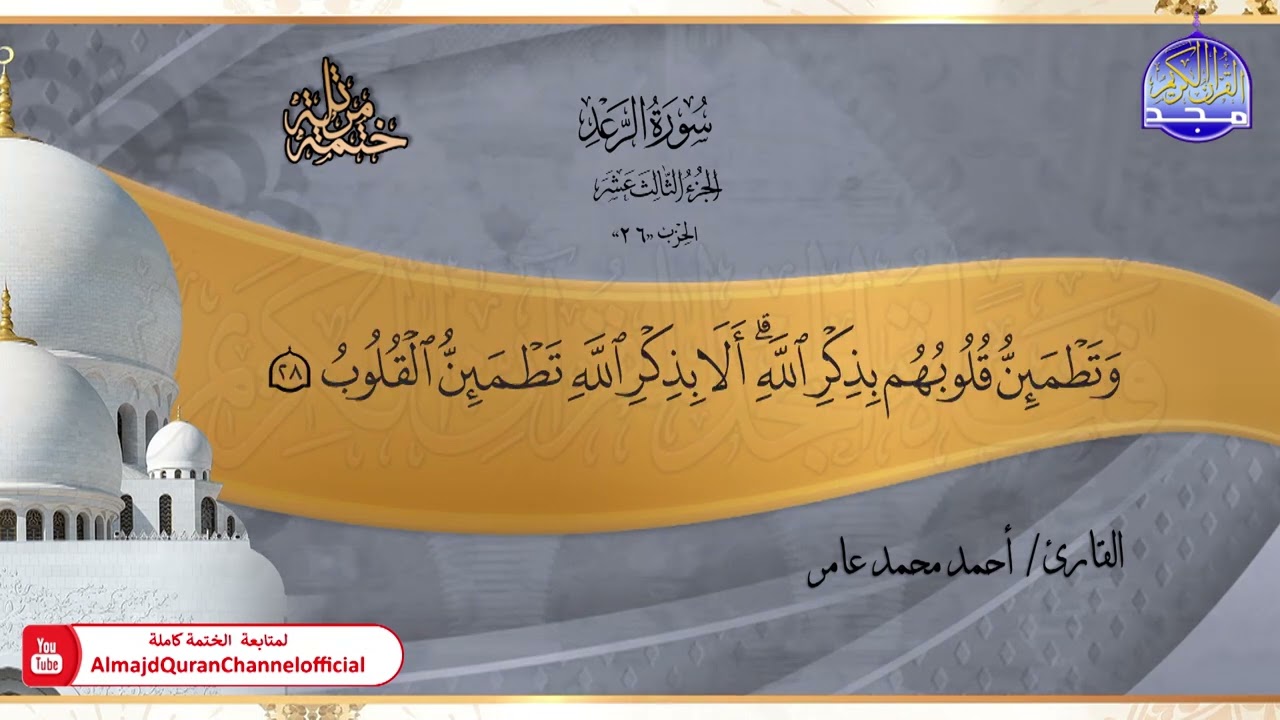 القرآن الكريم
مجد
ختمة مرتلة
سُورَةُ الرَّعْدِ
الجُزْءُ الثَّالِثَ عَشَرَ
الحِزْب «٢٦»
وَتَطْمَئِنُّ قُلُوبُهُم بِذِكْرِ ٱللَّهِ ۗ أَلَا بِذِكْرِ ٱللَّهِ تَطْمَئِنُّ ٱلْقُلُوبُ ٢٨
القارئ / أحمد محمد عامر
You
Tube
لمتابعة الختمة كاملة
AlmajdQuranChannelofficial